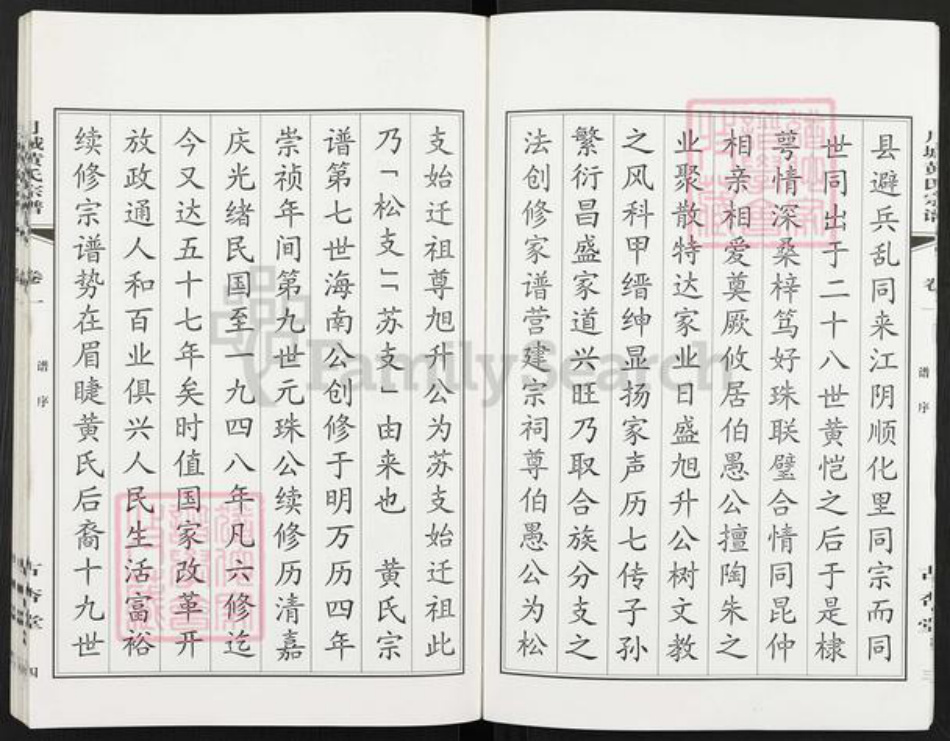 县避兵乱同来江阴顺化里同宗而同
世同出于二十八世黄恺之后于是棣
萼情深桑梓笃好珠联璧合情同昆仲
相亲相爱奠厥攸居伯愚公擅陶朱之
业聚散特达家业日盛旭升公树文教
之风科甲缙绅显扬家声历七传子孙
繁衍昌盛家道兴旺乃取合族分支之
法创修家谱营建宗祠尊伯愚公为松
支始迁祖尊旭升公为苏支始迁祖此
乃「松支」「苏支」由来也 黄氏宗
谱第七世海南公创修于明万历四年
崇祯年间第九世元珠公续修历清嘉
庆光绪民国至一九四八年凡六修迄
今又达五十七年矣时值国家改革开
放政通人和百业俱兴人民生活富裕
续修宗谱势在眉睫黄氏后裔十九世
城黄氏宗谱
卷一
谱序
四
卷一
谱序
三
FamilySearch